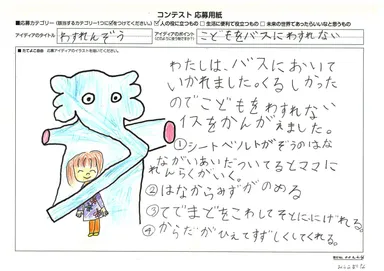 コンテスト 応募用紙
■応募カテゴリー(該当するカテゴリー1つに☑をつけてください。) ☑人の役に立つもの □生活に便利で役立つもの □未来の世界であったらいいなと思うもの
アイデアのタイトル わすれんぞう アイデアのポイント こどもをバスにわすれない
わたしは、バスにおいて
いかれました。くるしかった
のでこどもをわすれない
イスをかんがえました。
①シートベルトがぞうのはな
ながいあいだついてるとママに
れんらくがいく。
②はなからみずがのめる
③てでまどをこわしてそとににげれる。
④からだがひえてすずしくしてくれる。